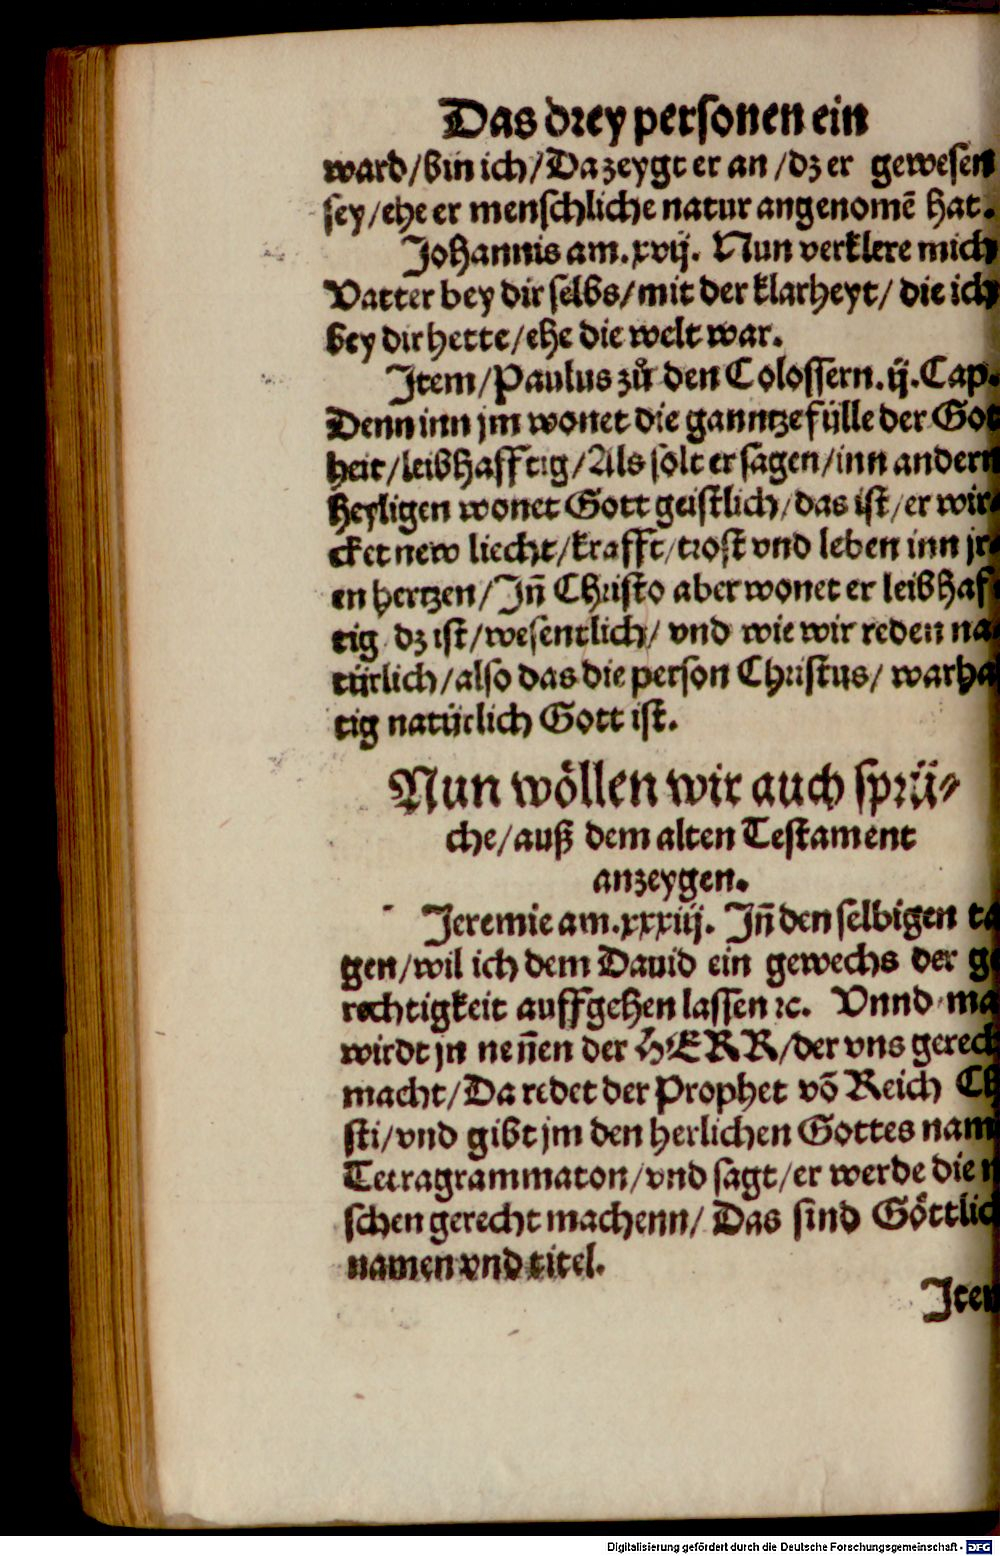 Das drey personen ein
ward/bin ich/Da zeygt er an/dz er gewesen
sey/ehe er menschliche natur angenomē hat.
Johannis am.xvij. Nun verklere mich
Vatter bey dir selbs/mit der klarheyt/die ich
bey dir hette/ehe die welt war.
Item/Paulus zů den Colossern.ij.Cap.
Denn inn jm wonet die ganntze fülle der Got
heit/leibhafftig/Als solt er sagen/inn andern
heyligen wonet Gott geistlich/das ist/er wir⸗
cket new liecht/krafft/trost vnd leben inn jr⸗
en hertzen/Jñ Christo aber wonet er leibhaf⸗
tig dz ist/wesentlich/vnd wie wir reden na⸗
türlich/also das die person Christus/warha
tig natürlich Gott ist.
Nun wöllen wir auch sprü⸗
che/auß dem alten Testament
anzeygen.
Jeremie am.xxxiij. Jñ den selbigen ta
gen/wil ich dem Dauid ein gewechs der ge
rechtigkeit auffgehen lassen ꝛc. Vnnd ma
wirdt jn neñen der HERR/der vns gerech
macht/Da redet der Prophet võ Reich Ch
sti/vnd gibt jm den herlichen Gottes nam
Tetragrammaton/vnd sagt/er werde die
schen gerecht machenn/Das sind Göttlic
namen vnd titel.
Item
Digitalisierung gefördert durch die Deutsche Forschungsgemeinschaft - DFG